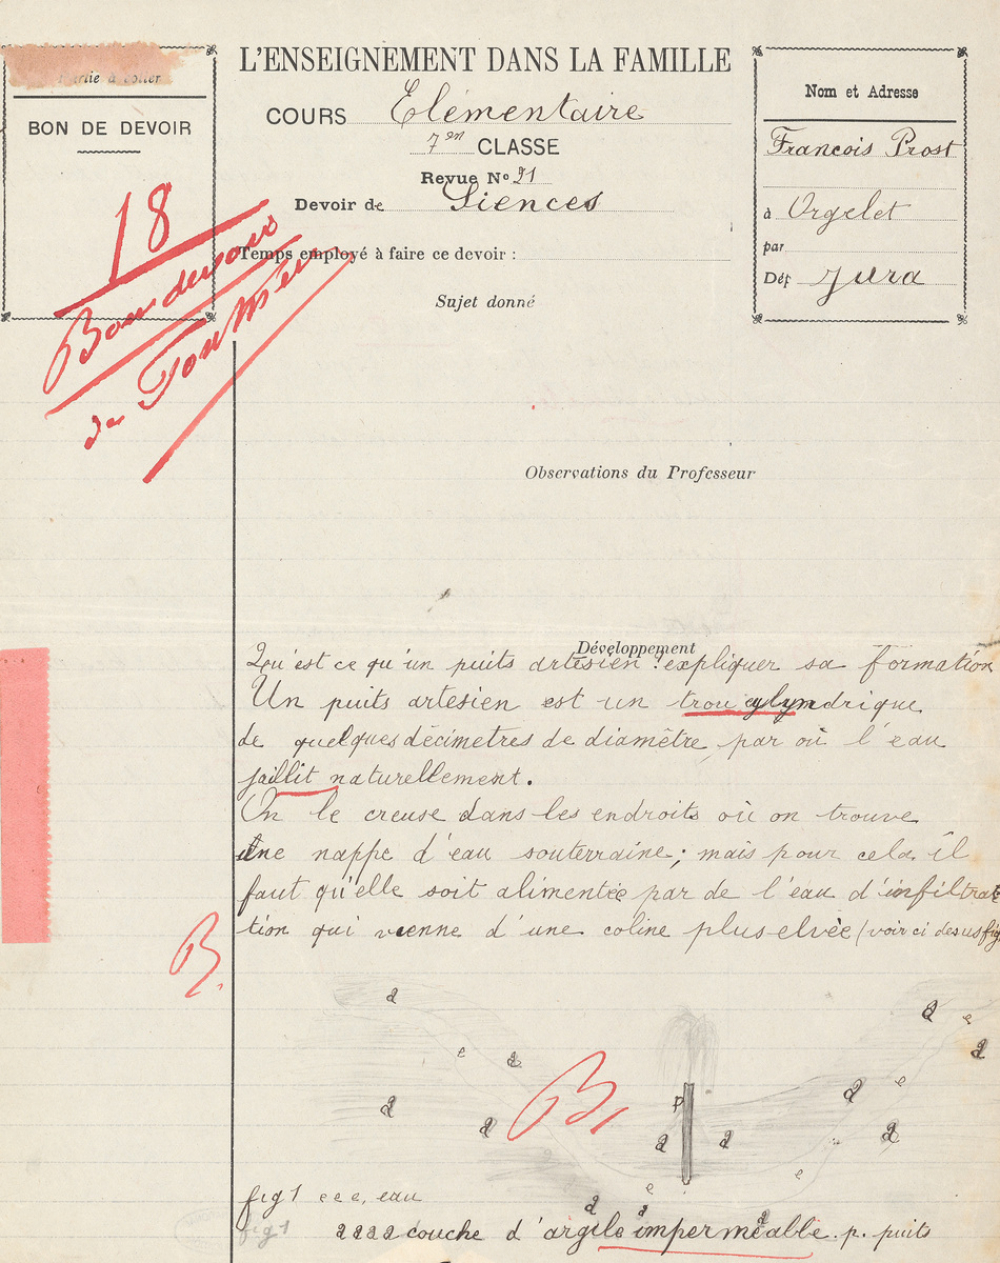 L'ENSEIGNEMENT DANS LA FAMILLE
COURS Elémentaire
7en CLASSE
Revue No 21
Devoir de Siences
Temps employé à faire ce devoir :
Sujet donné
Partie à coller
BON DE DEVOIR
18
Bon devoir
de
Nom et Adresse
Francois Prost
à Orgelet
par
Dép Jura
Observations du Professeur
Développement
Qu'est ce qu'un puits artésien ? expliquer sa formation
Un puits artesien est un trou cylyndrique
de quelques décimetres de diamêtre par où l'eau
jaillit naturellement.
On le creuse dans les endroits où on trouve
une nappe d'eau souterraine ; mais pour cela il
faut qu'elle soit alimentée par de l'eau d'infiltrat
tion qui vienne d'une coline plus elvée (voir ci desus fig
B.
a
a
e
a
e
a
e
a
B.
p
a
a
a
a
a
e
e
a
a
a
fig 1 e e e, eau
fig 1 a a a a couche d'argile imperméable. p. puits